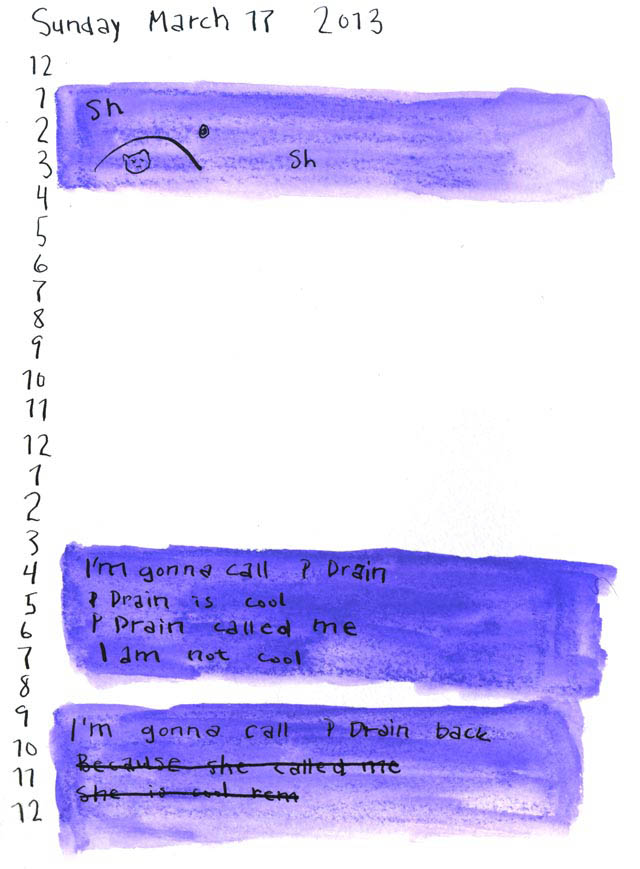 Sunday March 17 2013
12
1 Sh
2
3 Sh
4
5
6
7
8
9
10
11
12
1
2
3
4 I'm gonna call P Drain
5 P Drain is cool
6 P Drain called me
7 I am not cool
8
9 I'm gonna call P Drain back
10 Because she called me
11 She is cool rem
12